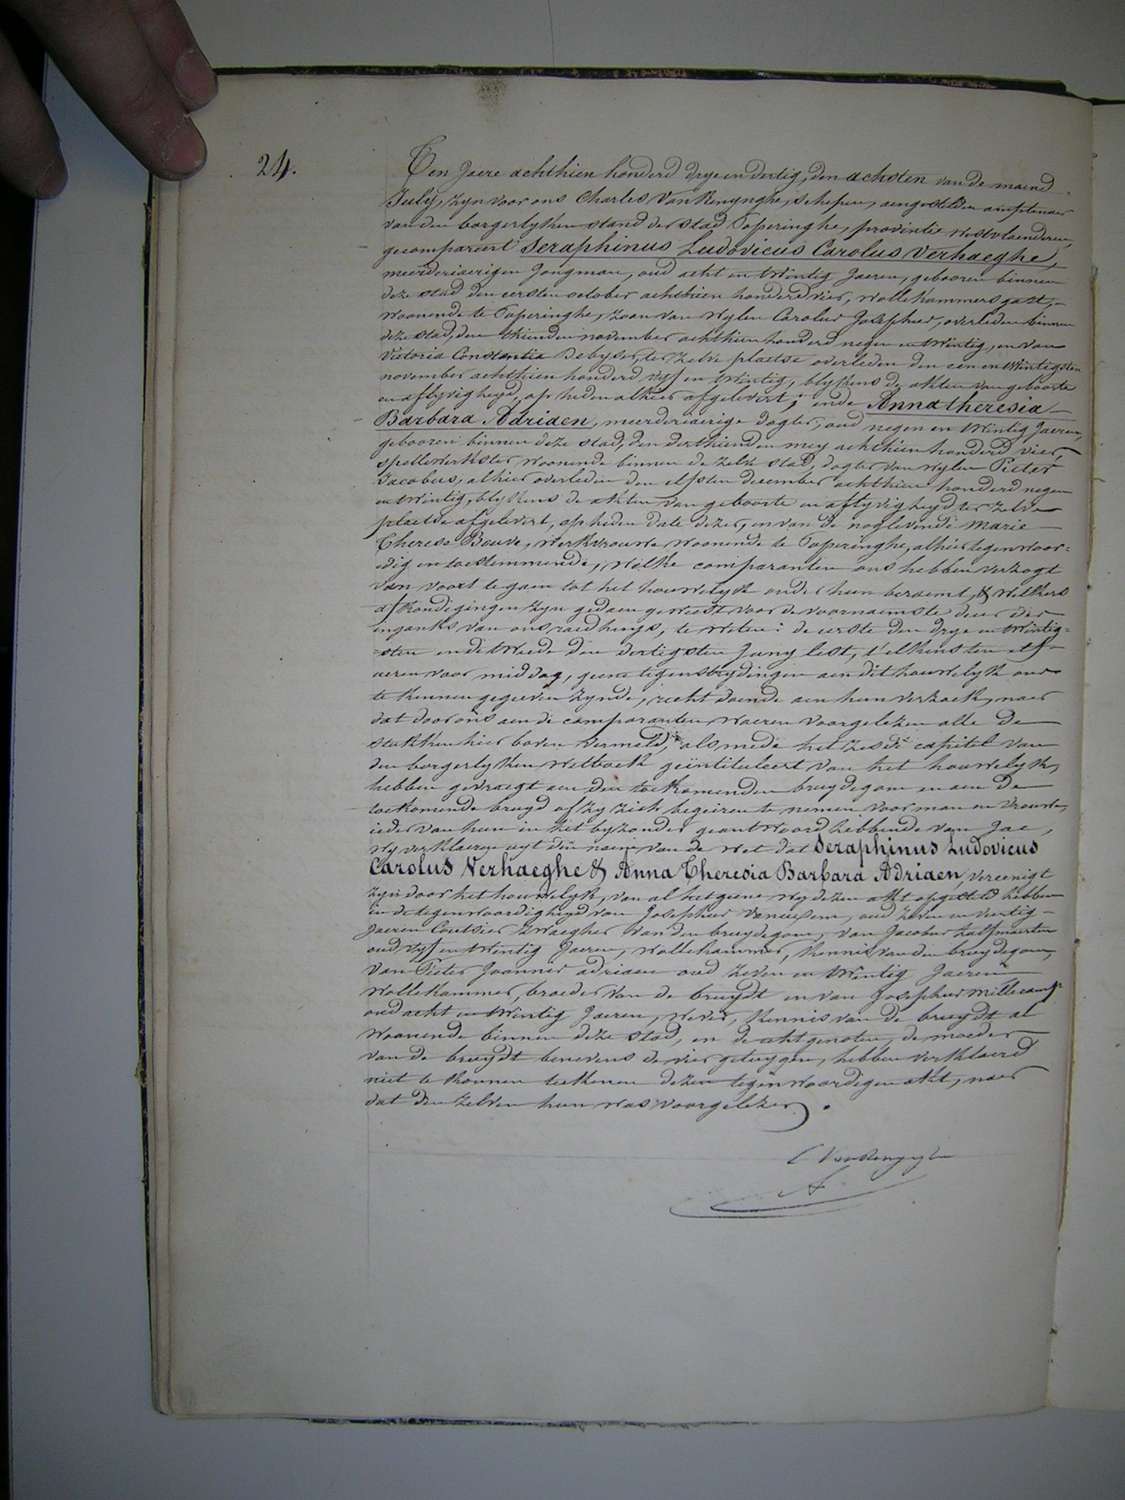 24.
Ten Jaere achthien honderd drye en dertig, den achsten van de maend
July, zyn voor ons Charles Van Renynghe, schepen, aengestelden amptenaer
van den borgerlyken stand der stad Poperinghe, provintie Westvlaenderen,
gecompareert Seraphinus Ludovicus Carolus Verhaeghe,
meerderjaerigen Jongman, oud acht en twintig Jaeren, gebooren binnen
deze stad den eersten october achthien honderd vier, wollekammersgast,
woonende te Poperinghe, zoon van wylen Carolus Josephus, overleden binnen
deze stad, den thienden november achthien honderd negen en twintig, en van
Victoria Constantia Debyser, ter zelve plaetse overleden den een en twintigsten
november achthien honderd vyf en twintig, blykens de akten van geboorte
en aflyvigheyd, op heden alhier afgelevert; ende Anna theresia
Barbara Adriaen, meerderjaerige dogter, oud negen en twintig Jaeren,
gebooren binnen deze stad, den derthienden mey achthien honderd vier,
spellewerkster woonende binnen de zelve stad, dogter van wylen Pieter
Jacobus, alhier overleden den elfsten december achthien honderd negen
en twintig, blykens de akten van geboorte en aflyvigheyd ter zelve
plaetse afgelevert, op heden date dezer, en van de noglevende Marie
Therese Bouve, werkvrouwe woonende te Poperinghe, alhier tegenwoor-
dig en toestemmende, welke comparanten ons hebben verzogt
van voort te gaen tot het houwelyk onder hun beraemt, & welkers
afkondigingen zyn gedaen geweest voor de voornaemste deur der
inganks van ons raedhuys, te weten: de eerste den drye en twintig-
sten en de tweede den dertigsten Juny lest, t'elkens ten elf
ueren voor middag, geene tegenstrydingen aen dit houwelyk ons
te kennen gegeeven zynde, recht doende aen hun verzoek, naer
dat door ons aen de comparanten waeren voorgelezen alle de
stukken hier boven vermeld, alsmede het zesde capitel van
den borgerlyken wetboek geïntituleert van het houwelyk,
hebben gevraegt aen den toekomenden bruydegom en aen de
toekomende bruyd of zy zich begeiren te nemen voor man en vrouwe,
ieder van hun in het byzonder geantwoord hebbende van Jae,
wy verklaeren uyt den naem van de wet dat Seraphinus Ludovicus
Carolus Verhaeghe & Anna Theresia Barbara Adriaen, vereenigt
zyn door het houwelyk, van al het geene wy dezen akt opgesteld hebben
in de tegenwoordigheyd van Josephus oud zeven en veertig
Jaeren zwaegher van den bruydegom, van Jacobus
oud vyf en twintig Jaeren, wollekammer, kennis van den bruydegom,
van Pieter Joannes adriaen oud zeven en twintig Jaeren
wollekammer, broeder van de bruydt en van Josephus Millecamp
oud acht en twintig Jaeren, wever, kennis van de bruydt al
woonende binnen deze stad, en de achtgenoten, de moeder
van de bruydt benevens de vier getuygen, hebben verklaerd
niet te konnen teekenen dezen tegenwoordigen akt, naer
dat den zelven hun was voorgelezen.
C Van Renynghe